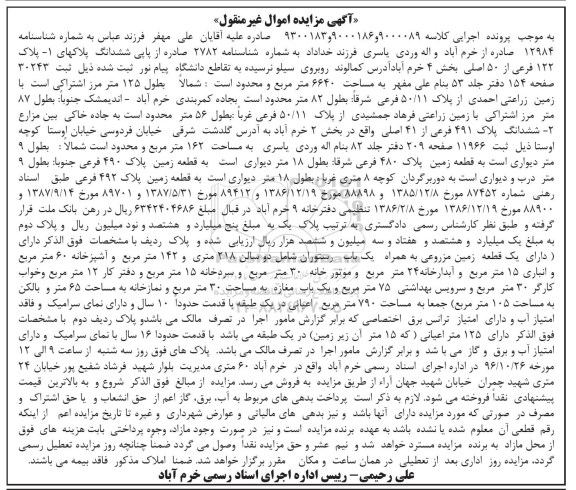 «آگهی مزایده اموال غیرمنقول»
به موجب پرونده اجرایی کلاسه ۹۰۰۰۰۸۹و۹۰۰۰۱۸۶و۹۳۰۰۱۸۳ صادره علیه آقایان علی مهفر فرزند عباس به شماره شناسنامه
۱۲۹۸۴ صادره از خرم آباد و اله وردی یاسری فرزند خداداد به شماره شناسنامه ۲۷۸۲ صادره از پاپی ششدانگ پلاکهای ۱- پلاک
۱۲۲ فرعی از ۵۰ اصلی بخش ۴ خرم آبادآدرس کمالوند روبروی سیلو نرسیده به تقاطع دانشگاه پیام نور ثبت شده ذیل ثبت ۳۰۲۴۳
صفحه ۱۵۴ دفتر جلد ۵۳ بنام علی مفهر به مساحت ۶۶۴۰ متر مربع و محدود است : شمالاً بطول ۱۲۵ متر مرز اشتراکی است با
زمین زراعتی احمدی از پلاک ۵۰/۱۱ فرعی شرقاً: بطول ۸۲ متر محدود است بجاده کمربندی خرم آباد - اندیمشک جنوباً: بطول ۸۷
متر مرز اشتراکی با زمین زراعتی فرهاد جمشیدی از پلاک ۵۰/۱۱ فرعی غرباً :بطول ۵۶ متر محدود است به جاده خاکی بین مزارع
۲- ششدانگ پلاک ۴۹۱ فرعی از ۴۱ اصلی واقع در بخش ۲ خرم آباد به آدرس گلدشت شرقی خیابان فردوسی خیابان اوستا کوچه
اوستا ذیل ثبت ۱۱۹۶۶ صفحه ۲۰۹ دفتر جلد ۸۲ بنام اله وردی یاسری به مساحت ۱۶۲ متر مربع و محدود است شمالاً : بطول ۹
متر دیواری است به قطعه زمین پلاک ۴۸۰ فرعی شرقا: بطول ۱۸ متر دیواری است به قطعه زمین پلاک ۴۹۰ فرعی جنوبا: بطول ۹
متر درب و دیواری است به دوربرگردان کوچه ۸ متری غربا: بطول ۱۸ متر دیواری است به قطعه زمین پلاک ۴۹۲ فرعی طبق اسناد
رهنی شماره ۸۷۴۵۲ مورخ ۱۳۸۵/۱۲/۸ و ۸۸۸۹۸ مورخ ۱۳۸۶/۱۲/۱۹ و ۸۹۴۱۲ مورخ ۱۳۸۷/۵/۳۱ و ۸۹۷۰۱ مورخ ۱۳۸۷/۹/۱۴ و
۸۸۹۰۰ مورخ ۱۳۸۶/۱۲/۱۹ مورخ ۱۳۸۶/۲/۸ تنظیمی دفترخانه ۹ خرم آباد در قبال مبلغ ۶۳۴۲۴۰۴۶۸۶ ریال در رهن بانک ملت قرار
گرفته و طبق نظر کارشناس رسمی دادگستری به ترتیب پلاک یک به مبلغ پنج میلیارد و هشتصد و نود میلیون ریال و پلاک دوم
به مبلغ یک میلیارد و هشتصد و هفتاد و سه میلیون و ششصد هزار ریال ارزیابی شده و پلاک ردیف با مشخصات فوق الذکر دارای
( دارای یک قطعه زمین مزروعی به همراه یک باب رستوران شامل دو سالن ۲۱۸ متری و ۱۴۲ متر مربع و آشپزخانه ۶۰ متر مربع
و انباری ۱۵ متر مربع و آبدارخانه ۲۴ متر مربع و موتور خانه ۳۰ متر مربع و سردخانه ۱۵ متر مربع و دفتر کار ۱۲ متر مربع وخواب
کارگر ۳۰ متر مربع و سرویس بهداشتی ۷۵ متر مربع و یک باب مغازه به مساحت ۳۰ متر مربع و نمازخانه به مساحت ۶۵ متر و بالکن
به مساحت ۱۰۵ متر مربع) جمعا به مساحت ۷۹۰ متر مربع اعیانی در یک طبقه با قدمت حدوداً ۱۰ سال و دارای نمای سرامیک و فاقد
امتیاز آب و دارای امتیاز ترانس برق اختصاصی که برابر گزارش مامور اجرا در تصرف مالک می باشدو پلاک ردیف دوم با مشخصات
فوق الذکر دارای ۱۲۵ متر اعیانی ( که ۱۵ متر آن زیر زمین) در یک طبقه می باشد با قدمت حدودا ۱۶ سال با نمای سرامیک و دارای
امتیاز آب و برق و گاز می با شد و برابر گزارش مامور اجرا در تصرف مالک می باشد. پلاک های فوق روز سه شنبه از ساعت ۹ الی ۱۲
مورخه ۹۶/۱۰/۲۶ در اداره اجرای اسناد رسمی خرم آباد واقع در خرم آباد ۶۰ متری مدیریت بلوار شهید فرشاد شفیع پور خیابان ۲۴
متری شهید چمران خیابان شهید جهان آراء از طریق مزایده به فروش می رسد. مزایده از مبالغ فوق الذکر شروع و به بالاترین قیمت
پیشنهادی نقداً فروخته می شود. لازم به ذکر است پرداخت بدهی های مربوط به آب، برق، گاز اعم از حق انشعاب و یا حق اشتراک و
مصرف در صورتی که مورد مزایده دارای آنها باشد و نیز بدهی های مالیاتی و عوارض شهرداری و غیره تا تاریخ مزایده اعم از اینکه
رقم قطعی آن معلوم شده یا نشده باشد به عهده برنده مزایده است و نیز در صورت وجود مازاد، وجوه پرداختی بابت هزینه های فوق
از محل مازاد به برنده مزایده مسترد خواهد شد و نیم عشر و حق مزایده نقداً وصول می گردد ضمناً چنانچه روز مزایده تعطیل رسمی
گردد، مزایده روز اداری بعد از تعطیلی در همان ساعت و مکان مقرر برگزار خواهد شد. ضمنا املاک مذکور فاقد بیمه می باشند.
علی رحیمی- رییس اداره اجرای اسناد رسمی خرم آباد